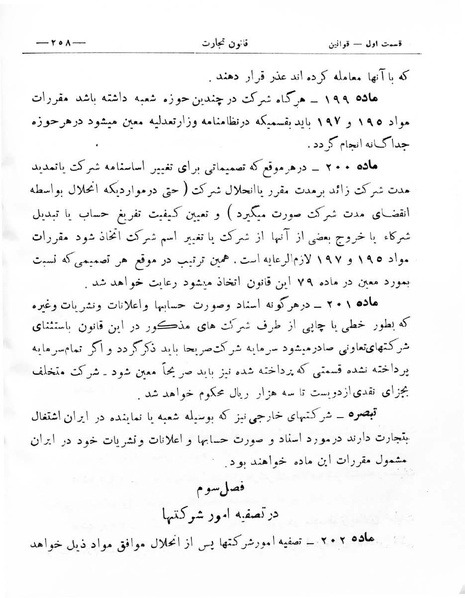 قسمت اول — قوانین
قانون تجارت
—۲۵۸—
که با آنها معامله کرده اند عذر قرار دهند .
ماده ۱۹۹ — هرگاه شرکت در چندین حوزه شعبه داشته باشد مقررات
مواد ۱۹۵ و ۱۹۷ باید بقسمیکه در نظامنامه وزارت عدلیه معین میشود در هر حوزه
جداگانه انجام گردد .
ماده ۲۰۰ — در هر موقع که تصمیماتی برای تغییر اساسنامه شرکت یا تمدید
مدت شرکت زائد بر مدت مقرر یا انحلال شرکت ( حتی در مواردیکه انحلال بواسطه
انقضای مدت شرکت صورت میگیرد ) و تعیین کیفیت تفریغ حساب یا تبدیل
شرکاء یا خروج بعضی از آنها از شرکت یا تغییر اسم شرکت اتخاذ شود مقررات
مواد ۱۹۵ و ۱۹۷ لازم الرعایه است . همین ترتیب در موقع هر تصمیمی که نسبت
بمورد معین در ماده ۷۹ این قانون اتخاذ میشود رعایت خواهد شد .
ماده ۲۰۱ — در هر گونه اسناد و صورت حسابها و اعلانات و نشریات و غیره
که بطور خطی یا چاپی از طرف شرکت های مذکور در این قانون باستثنای
شرکتهای تعاونی صادر میشود سرمایه شرکت صریحا باید ذکر گردد و اگر تمام سرمایه
پرداخته نشده قسمتی که پرداخته شده نیز باید صریحاً معین شود - شرکت متخلف
بجزای نقدی از دویست تا سه هزار ریال محکوم خواهد شد .
تبصره — شرکتهای خارجی نیز که بوسیله شعبه یا نماینده در ایران اشتغال
بتجارت دارند در مورد اسناد و صورت حسابها و اعلانات و نشریات خود در ایران
مشمول مقررات این ماده خواهند بود .
فصل سوم
در تصفیه امور شرکتها
ماده ۲۰۲ — تصفیه امور شرکتها پس از انحلال موافق مواد ذیل خواهد